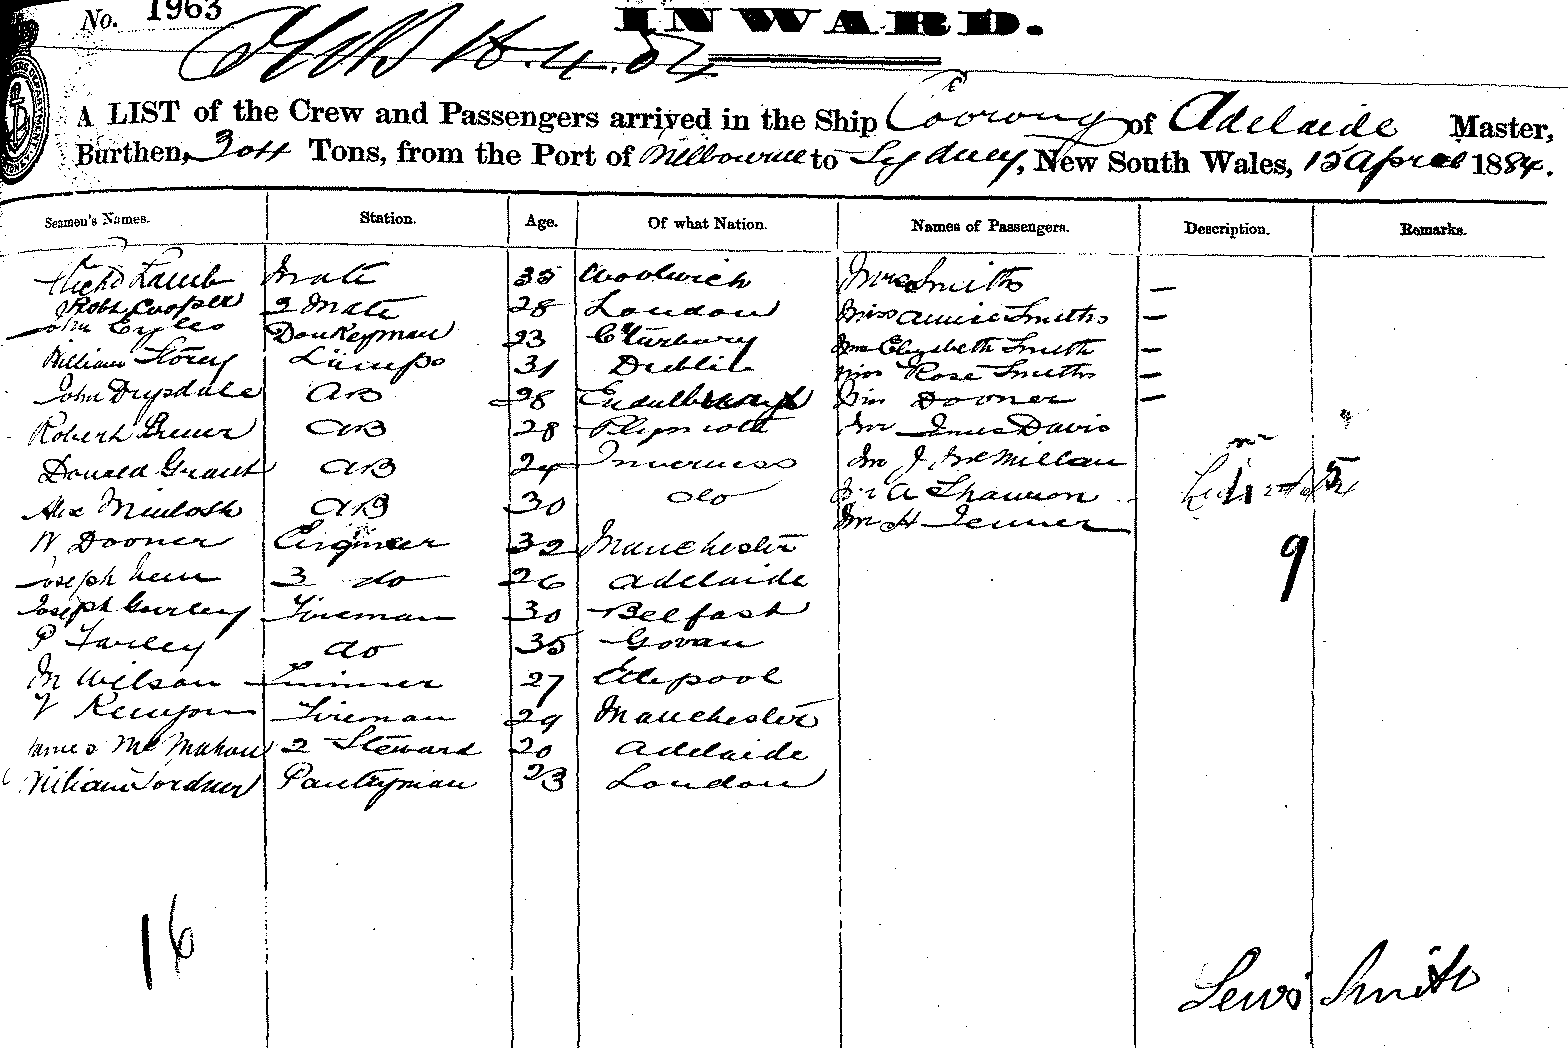 No. 1963
INWARD.
A LIST of the Crew and Passengers arrived in the Ship Coorong of Adelaide Master,
Burthen, 304 Tons, from the Port of Melbourne to Sydney, New South Wales, 15 April 1884.
Seamen's Names. Station. Age. Of what Nation. Names of Passengers. Description. Remarks.
Richd Lamb Mate 35 Woolwich Mrs Smith —
Robt Cooper 2 Mate 28 London Miss Annie Smith —
John Eyles Donkeyman 23 Elizabeth Smith —
William Storey Lamps 31 Dublin Miss Rose Smith —
John Drysdale AB 28 Miss Dooner —
Robert AB 28 Plymouth Mr Davis
Donald Grant AB 24 Inverness Mr J McMillan
Alex McIntosh AB 30 do Mr A
Mr H Jenner
W Dooner Engineer 32 Manchester
9
Joseph 3 do 26 Adelaide
Joseph Fireman 30 Belfast
P Farley do 35 Govan
M Wilson Trimmer 27
Kenyon Fireman 29 Manchester
James McMahon 2 Steward 20 Adelaide
William Pantryman 23 London
16
Lewis Smith